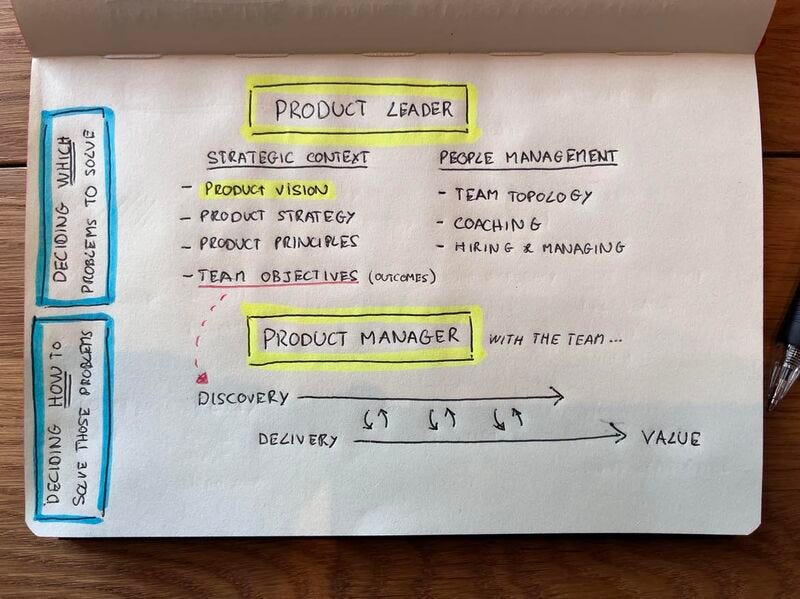 DECIDING WHICH
PROBLEMS TO SOLVE
PRODUCT LEADER
STRATEGIC CONTEXT
- PRODUCT VISION
- PRODUCT STRATEGY
- PRODUCT PRINCIPLES
- TEAM OBJECTIVES (OUTCOMES)
PEOPLE MANAGEMENT
- TEAM TOPOLOGY
- COACHING
- HIRING & MANAGING
DECIDING HOW TO
SOLVE THOSE PROBLEMS
PRODUCT MANAGER WITH THE TEAM ...
DISCOVERY
DELIVERY VALUE